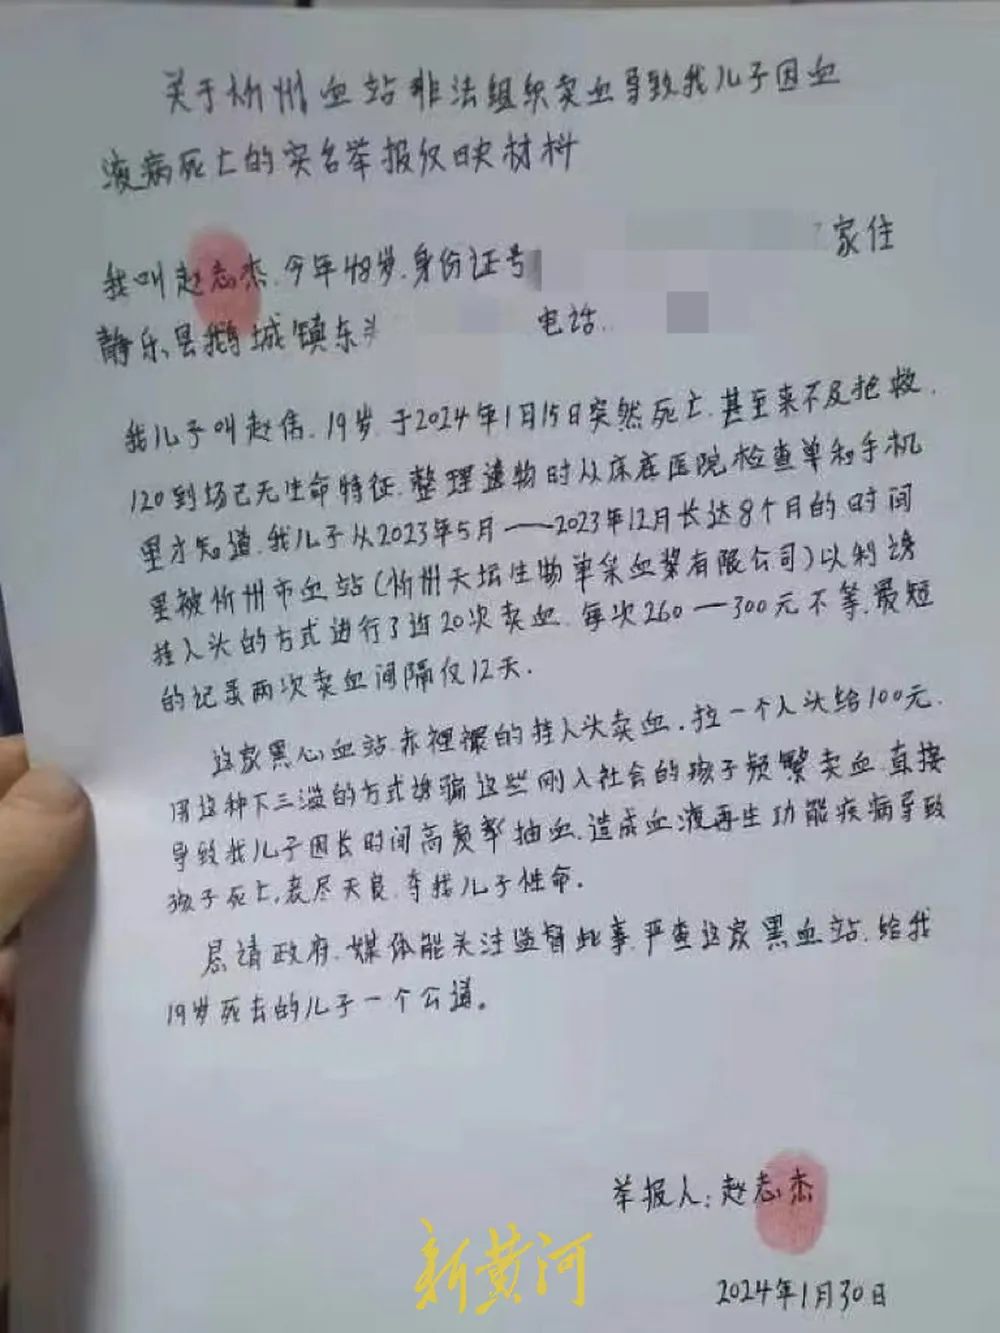 关于忻州血站非法组织卖血导致我儿子因血
液病死亡的实名举报仅映材料
家住
我叫赵志杰.今年48岁.身份证号
静乐县鹅城镇东头
电话.
我儿子叫赵伟.19岁.于2024年1月15日突然死亡.甚至来不及抢救.
120到场已无生命特征.整理遗物时从床底医院检查单和手机
里才知道.我儿子从2023年5月——2023年12月长达8个月的时间
里被忻州市血站(忻州天坛生物单采血浆有限公司)以利诱
挂人头的方式进行了近20次卖血.每次260—300元不等.最短
的记录两次卖血间隔仅12天.
这家黑心血站.赤裸裸的挂人头卖血.拉一个人头给100元.
用这种下三滥的方式诱骗这些刚入社会的孩子频繁卖血.直接
导致我儿子因长时间高频率抽血.造成血液再生功能疾病导致
孩子死亡,丧尽天良.夺我儿子性命.
恳请政府.媒体能关注监督此事.严查这家黑血站.给我
19岁死去的儿子一个公道。
举报人:赵志杰
新黄河
2024年1月30日